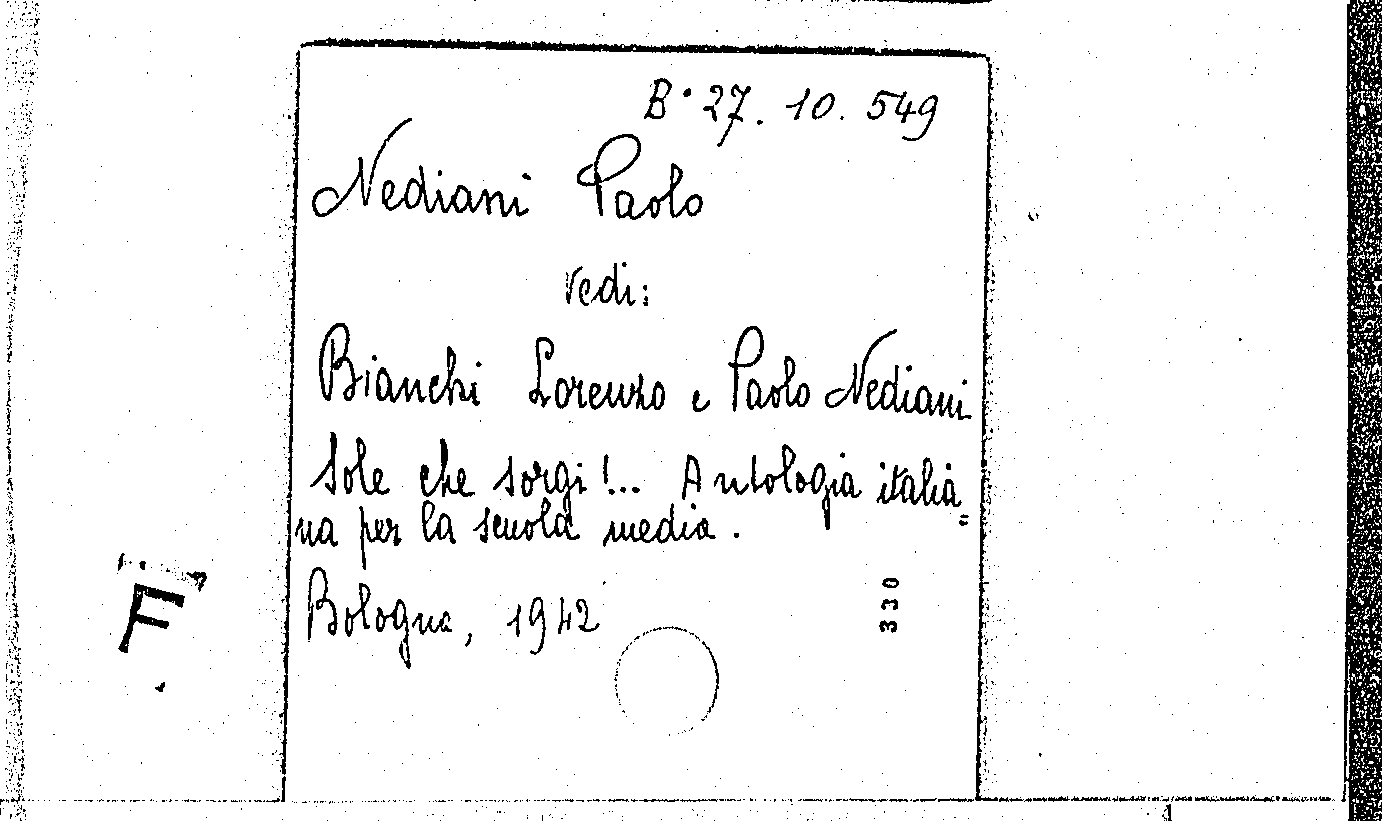 B. 27. 10. 549
Nediani Paolo
Vedi:
Bianchi Lorenzo e Paolo Nediani
Sole che sorgi!... Antologia italia=
na per la scuola media.
Bologna, 1942
330
F